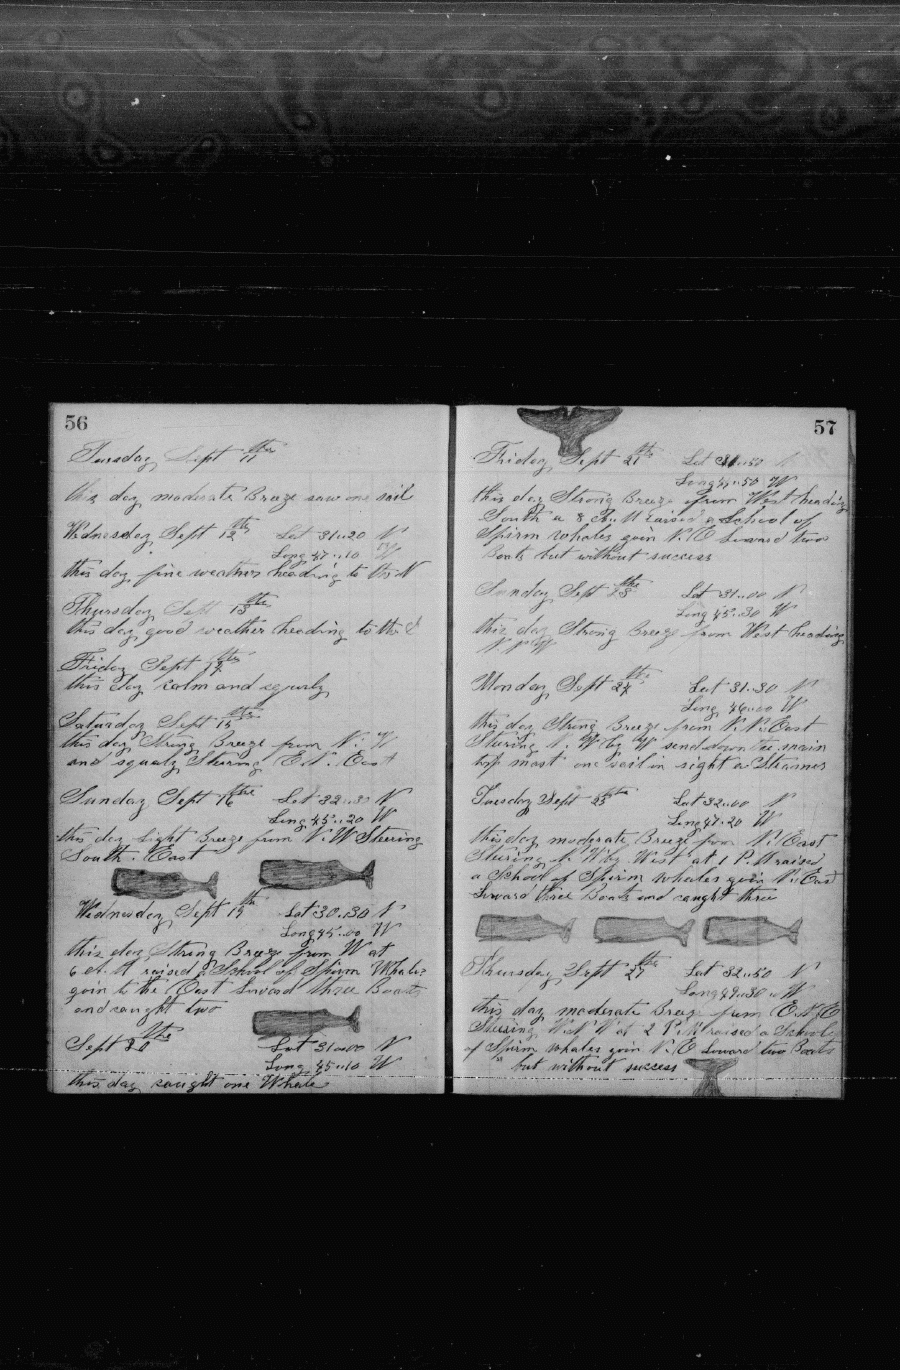 56
Tuesday Sept 11th
this day moderate Breeze saw one sail
Wednesday Sept 12th Lat 31..20 N
Long 47..10 W
this day fine weather heading to the N
Thursday Sept 13th
this day good weather heading to the
Friday Sept 14th
this day calm and squaly
Saturday Sept 15th
this day Strong Breeze from N. W
and squaly Steering East
Sunday Sept 16th Lat 32..30 N
Long 45..20 W
this day light Breeze from N. W Steering
South. East
Wednesday Sept 19th Lat 30..30 N
Long 45..00 W
this day Strong Breeze from W at
6 A. M raised a School of Spirm Whales
goin to the East Loward three Boats
and caught two
Sept 20th Lat 31..00 N
Long 45..10 W
this day caught one Whale
57
Friday Sept 21th Lat 31..50 N
Long 47..50 W
this day Strong Breeze from West heading
South a 8 A. M raised a School of
Spirm whales goin N. E Loward two
Boats but without success
Sunday Sept 23th Lat 31..00 N
Long 45..30 W
this day Strong Breeze from West heading
Monday Sept 24th Lat 31..30 N
Long 46..00 W
this day Strong Breeze from N. N. East
Steering N. W by W send down the main
top mast one sail in sight a Steamer
Tuesday Sept 25th Lat 32..00 N
Long 47..20 W
this day moderate Breeze from N. East
Steering N. W by West at 1 P. M raised
a School of Spirm whales goin N. East
Loward three Boats and caught three
Thursday Sept 27th Lat 32..50 N
Long 49..30 W
this day moderate Breeze from E. N. E
Steering W. N. W at 2 P. M raised a School
of Spirm whales goin N. E Loward two Boats
but without success